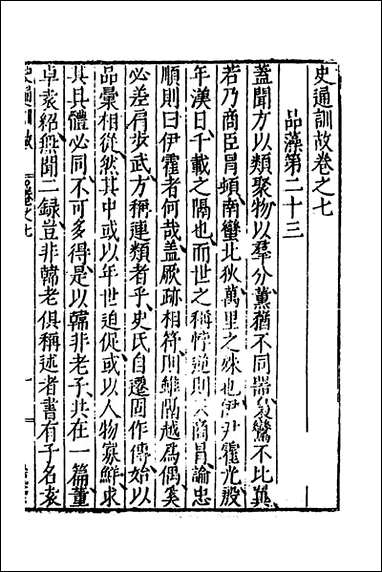 史通訓故卷之七
品藻第二十三
蓋聞方以類聚物以羣分薰蕕不同器梟鸞不比翼
若乃商臣冒頓南蠻北狄萬里之殊也伊尹霍光殷
年漢日千載之隔也而世之稱悖逆則云商冒論忠
順則曰伊霍者何哉蓋厥跡相符則雖隔越爲偶奚
必差肩步武方稱連類者乎史氏自遷固作傳始以
品彙相從然其中或以年世迫促或以人物寡鮮求
其具體必同不可多得是以韓非老子共在一篇董
卓袁紹無聞二録豈非韓老俱稱述者書有子名袁